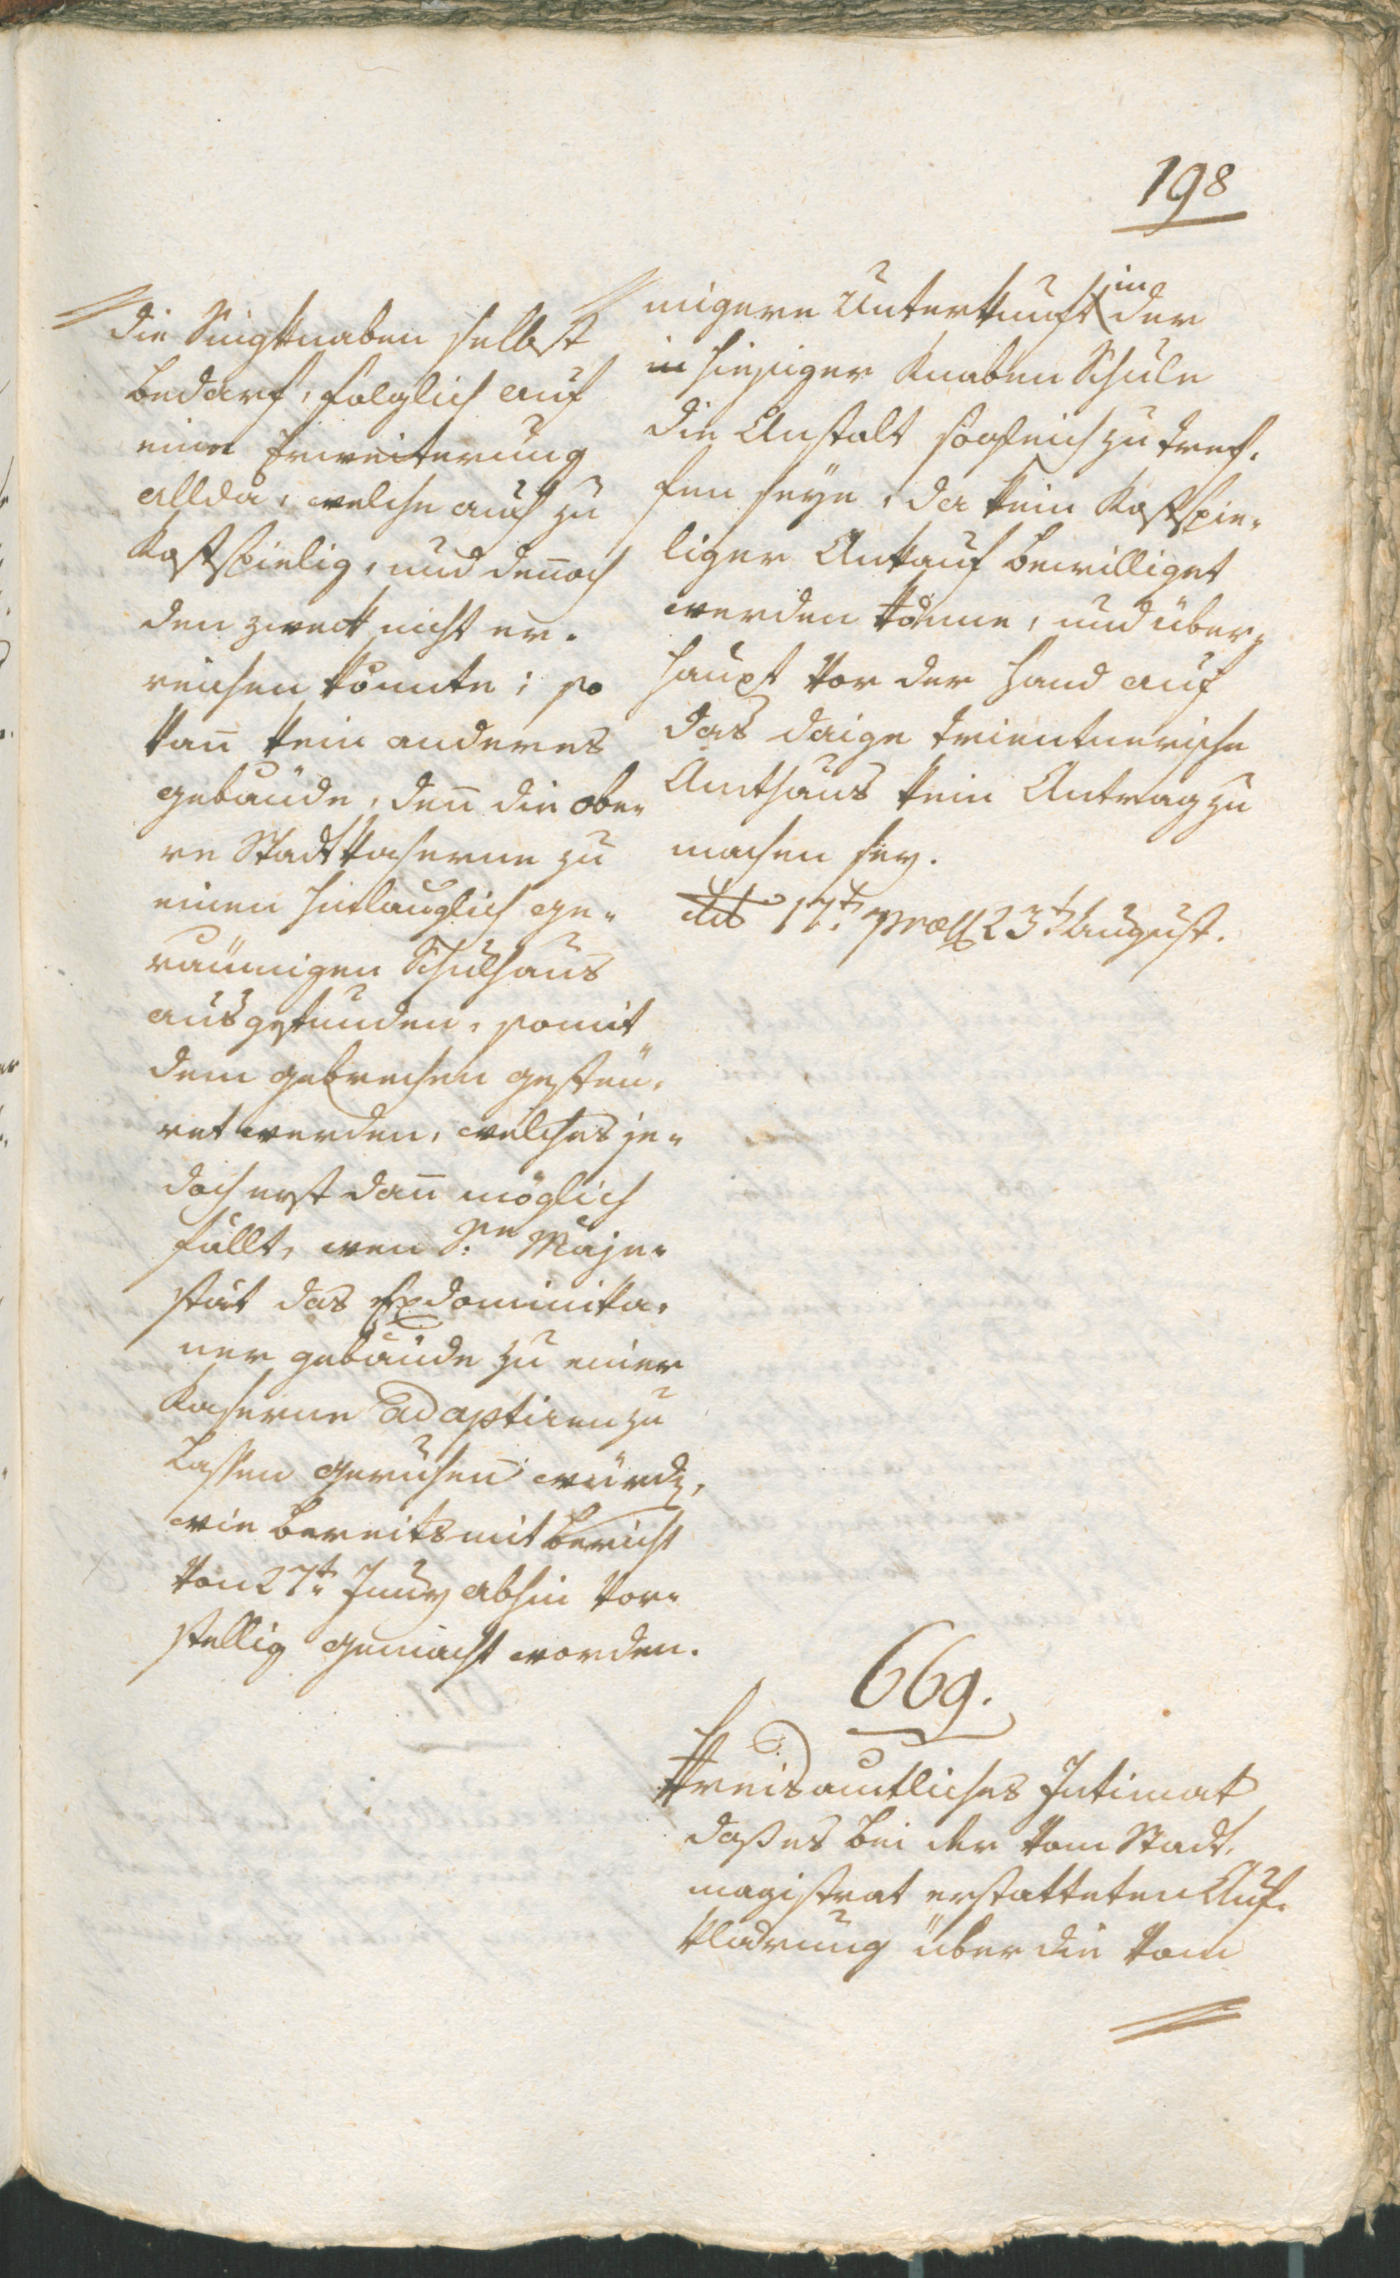 198
die Singknaben selbst
bedarf, folglich auf
eine Erweiterung
allda, welche auch zu
kostspielig, und deñoch
den zweck nicht er-
reichen könnte; so
kañ kein anderes
gebäude, deñ die obe-
re Stadtkaserne zu
einen hinlänglich ge-
räumigen Schulhaus
ausgefunden, somit
dem gebrechen gesteu-
ret werden, welches je-
doch erst dañ möglich
fällt, wen Se. Maje-
stät das Exdominika-
ner gebäude zu einer
Kaserne adaptiren zu
lassen geruhen würde,
wie bereits mit bericht
von 27t. Juny abhin vor-
stellig gemacht worden.
migere Unterkunft in der
in hiesiger Knaben Schule
die Anstalt sogleich zu tref-
fen seye, da kein kostspie-
liger Ankauf bewilliget
werden könne, und über-
haupt vor der Hand auf
das daige trientnerische
Amthaus kein Antrag zu
machen sey.
dto 17t. præs 23t August.
669.
Kreisamtliches Intimat
daß es bei der vom Stadt-
magistrat erstatteten Auf-
klärung über die vom